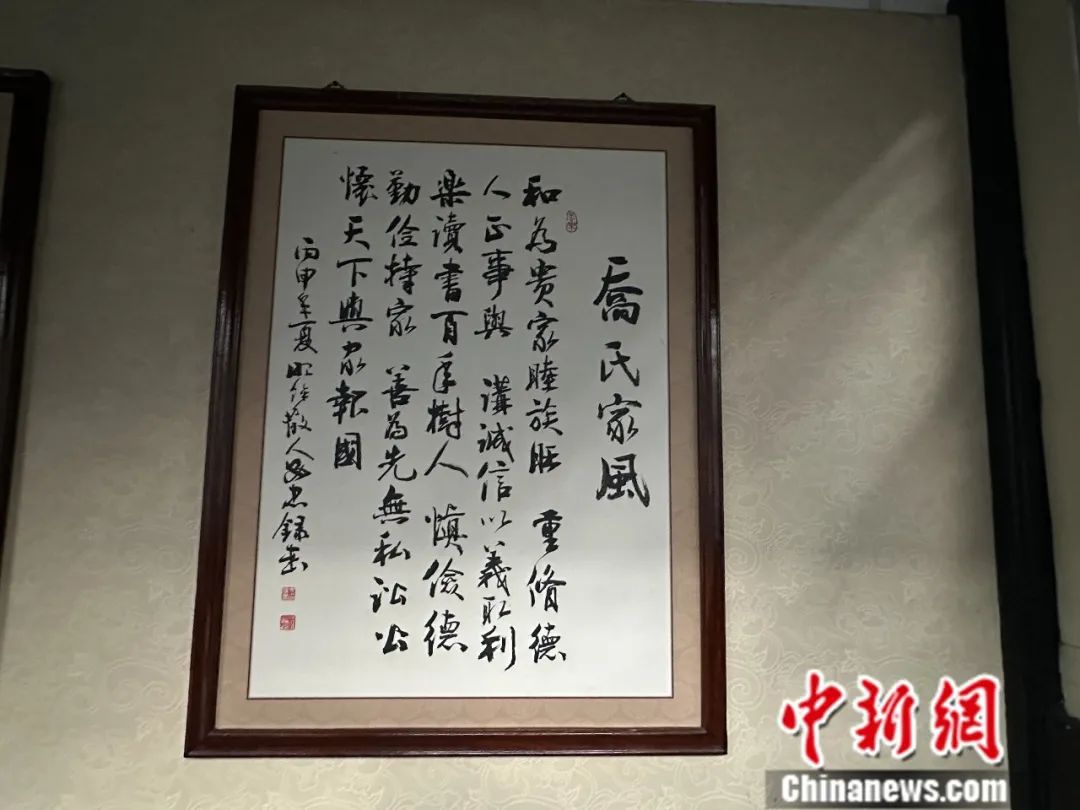 喬氏家風
和為贵家睦族旺 重脩德
人正事興 講誠信以義取利
樂讀書百年樹人 慎儉德
勤俭持家 善為先無私訟公
懷天下興家報國
丙申年夏
散人
錄書
中新網
Chinanews.com